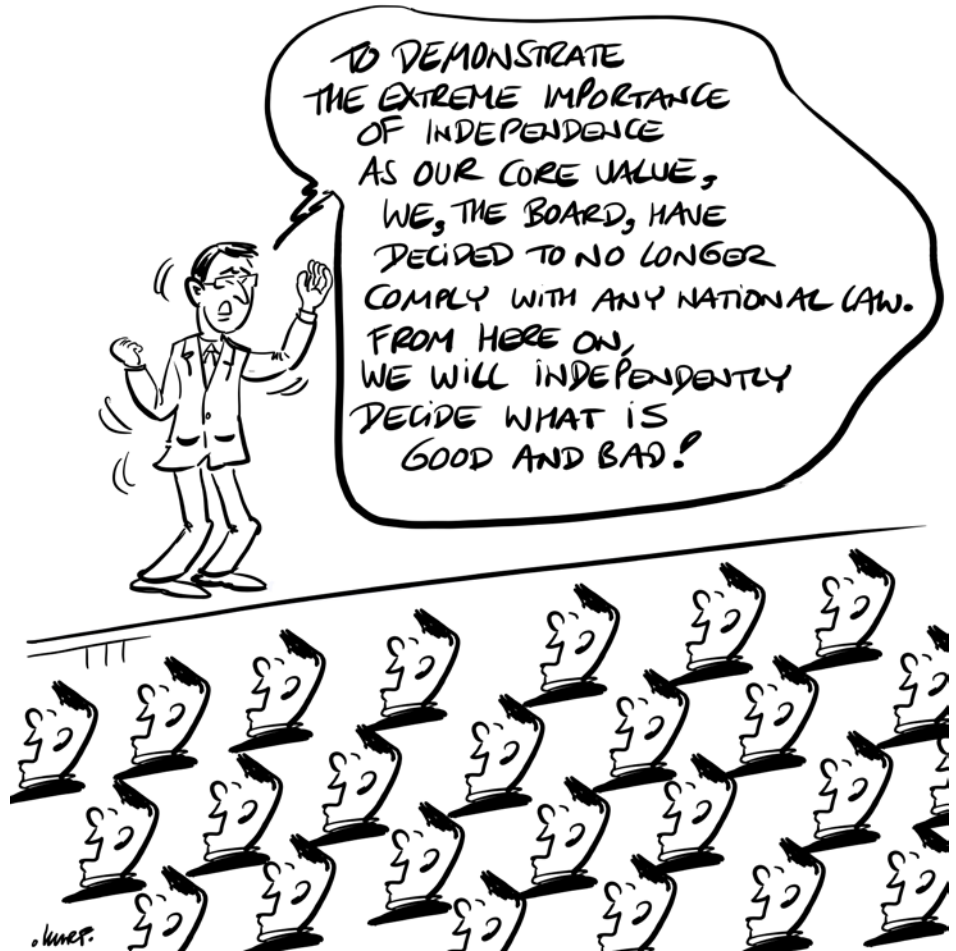 TO DEMONSTRATE
THE EXTREME IMPORTANCE
OF INDEPENDENCE
AS OUR CORE VALUE,
WE, THE BOARD, HAVE
DECIDED TO NO LONGER
COMPLY WITH ANY NATIONAL LAW.
FROM HERE ON,
WE WILL INDEPENDENTLY
DECIDE WHAT IS
GOOD AND BAD!